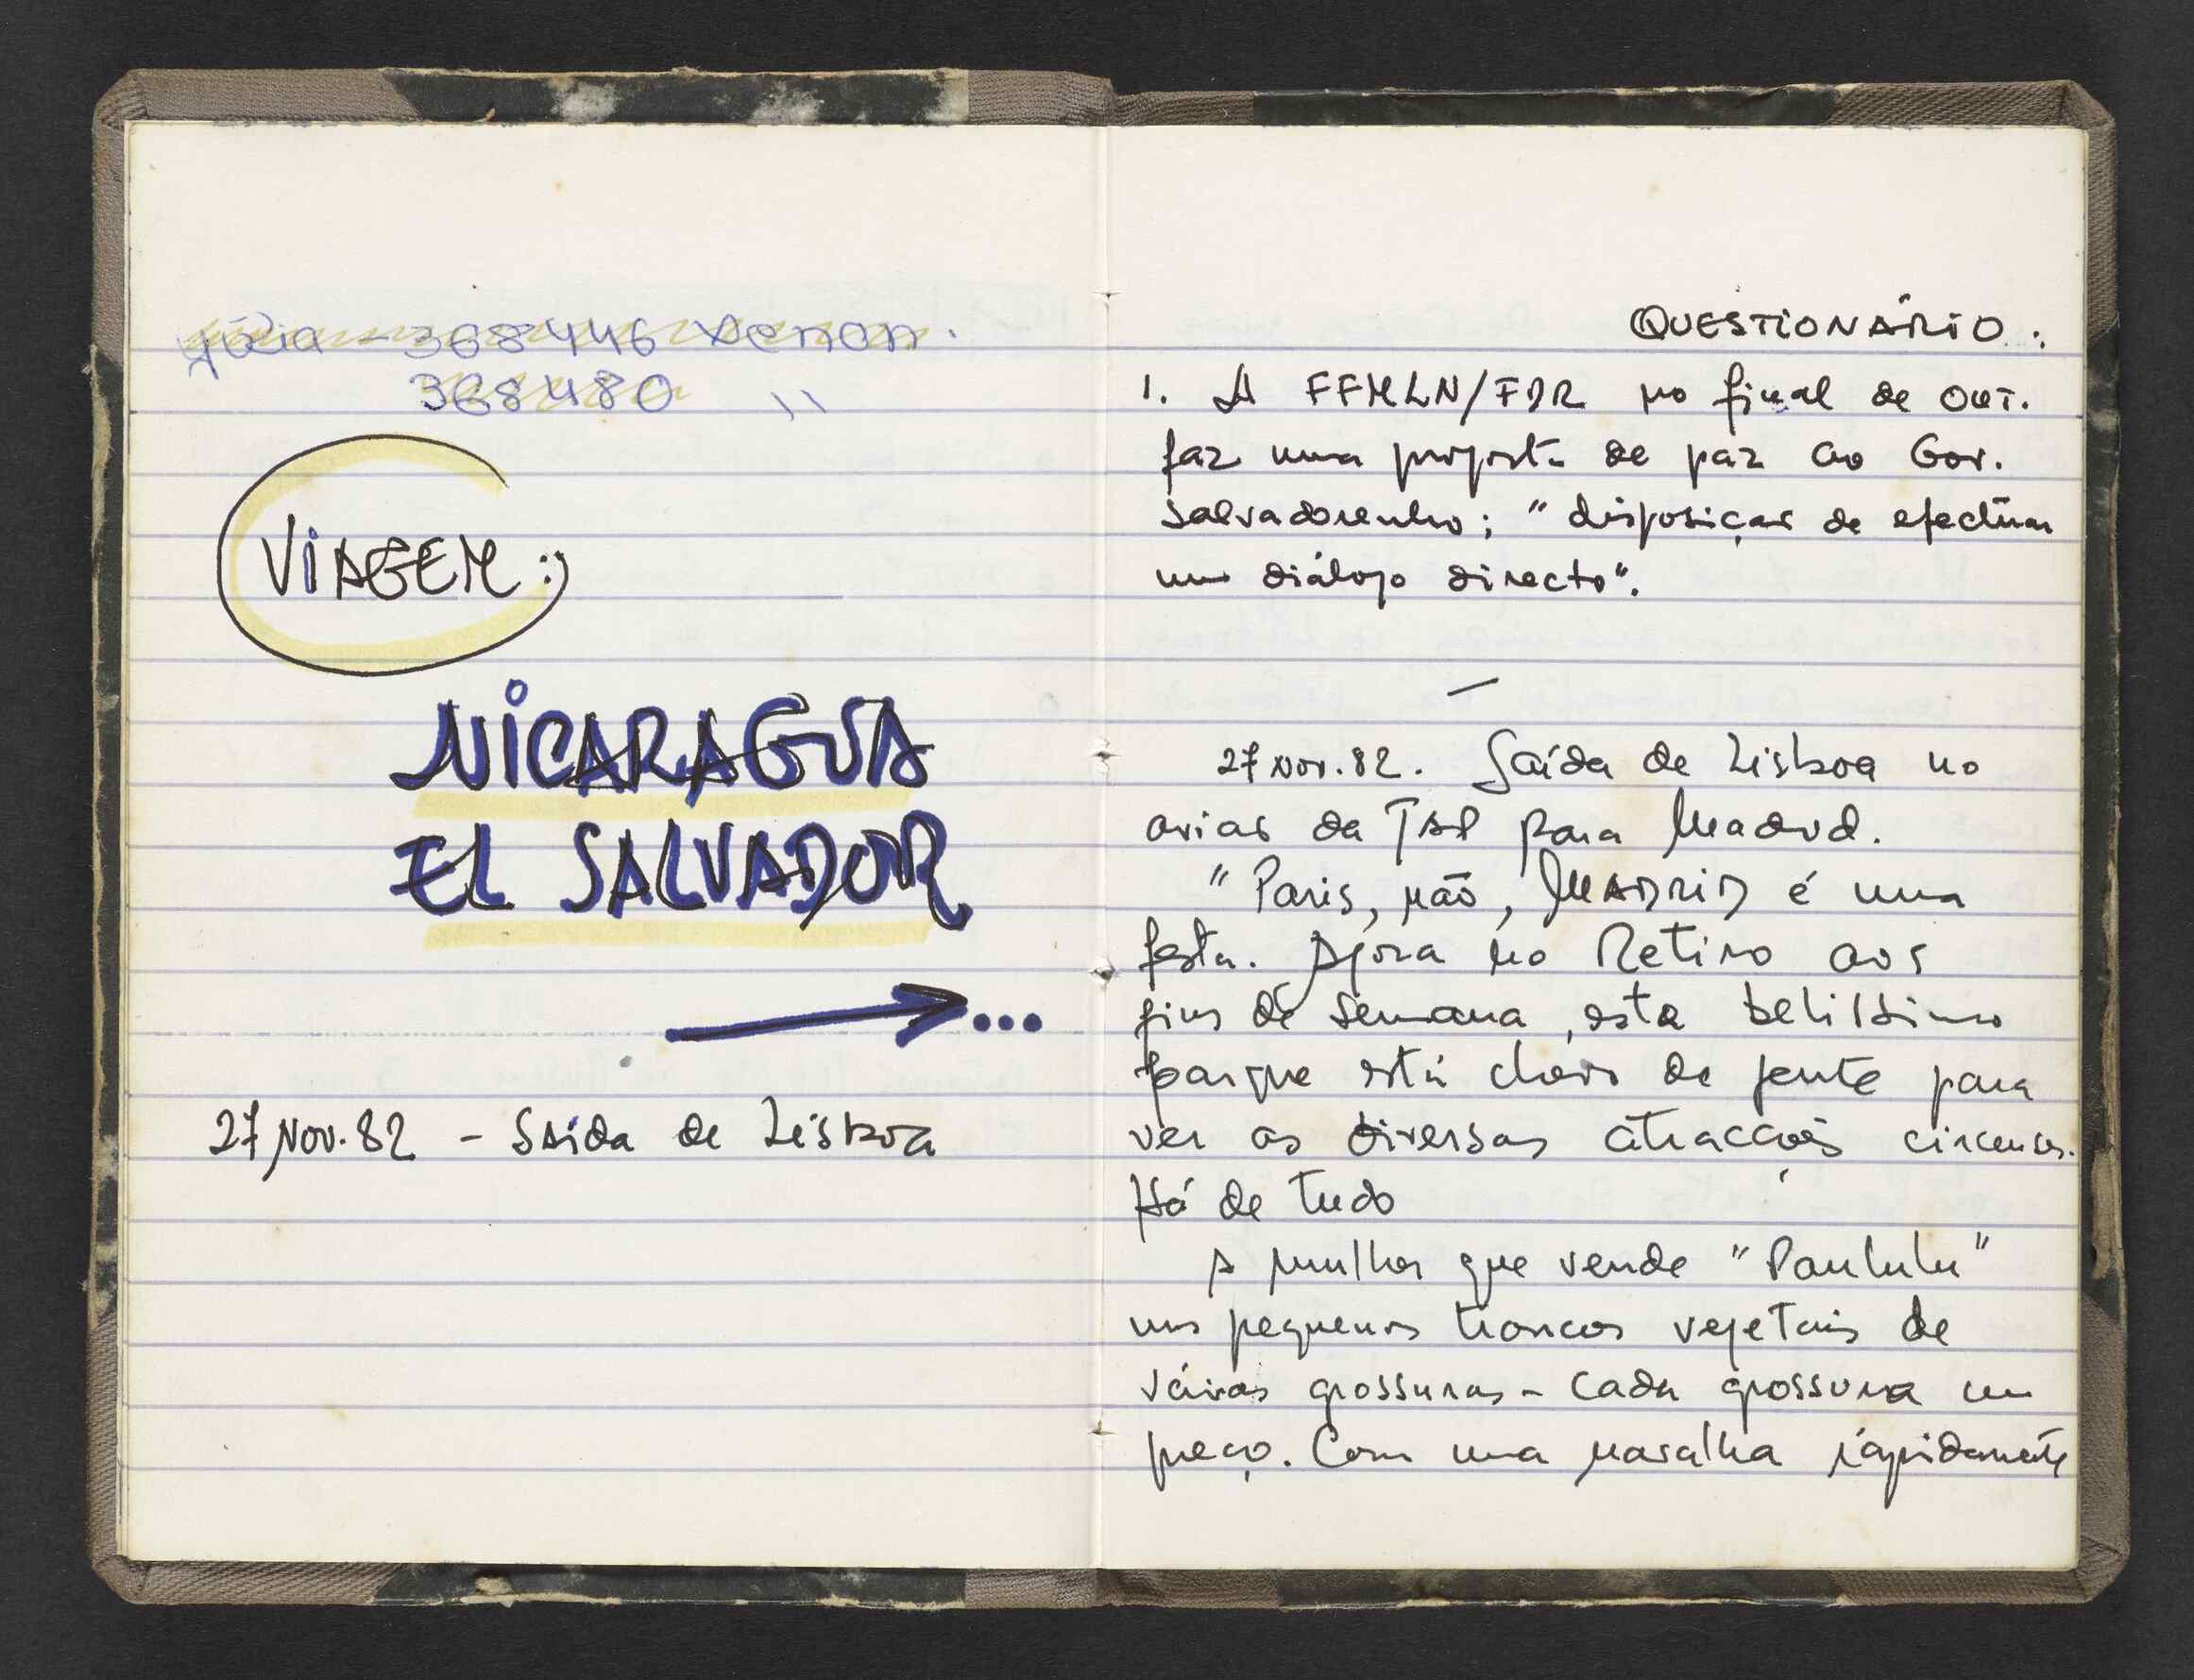 Júlia - 368446
368480 "
VIAGEM:
NICARAGUA
EL SALVADOR
→...
27 Nov. 82 - Saida de Lisboa
QUESTIONÁRIO:
1. A FFMLN/FDR no final de OUT.
faz uma proposta de paz ao Gov.
salvadorenho; "disposição de efectuar
um diálogo directo".
—
27 Nov. 82. Saída de Lisboa no
avião da TAP para Madrid.
"Paris, não, MADRID é uma
festa. Agora no Retiro aos
fins de semana, este belissimo
parque está cheio de gente para
ver as diversas atracções circenses.
Há de tudo
A mulher que vende "Paululu"
uns pequenos troncos vegetais de
várias grossuras - cada grossura um
preço. Com uma navalha rápidamente